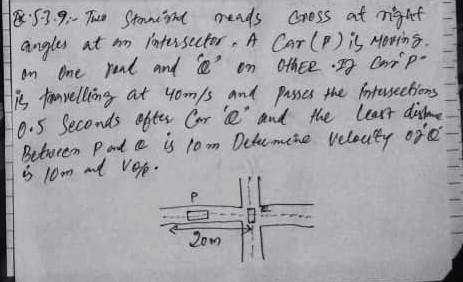 Ex:5.3.9:- Two Straight roads cross at right
angles at an intersector. A Car (P) is Moving.
on One road and "Q" on OthER. If Car "P"
is travelling at 40m/s and Passes the Intersections
0.5 Seconds after Car "Q" and the least distance
Between P and Q is 10m Determine Velocity of Q
is 10m and VQ/P.
P
20m